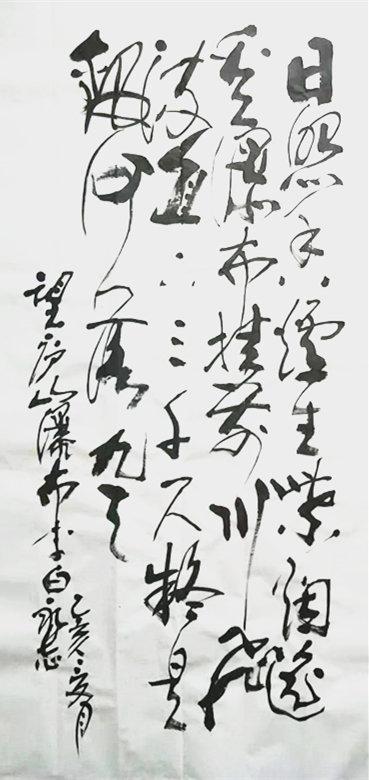 日照香爐生紫烟遥
看瀑布挂前川飛
流直下三千尺疑是
銀河落九天
望庐山瀑布李白
亥月